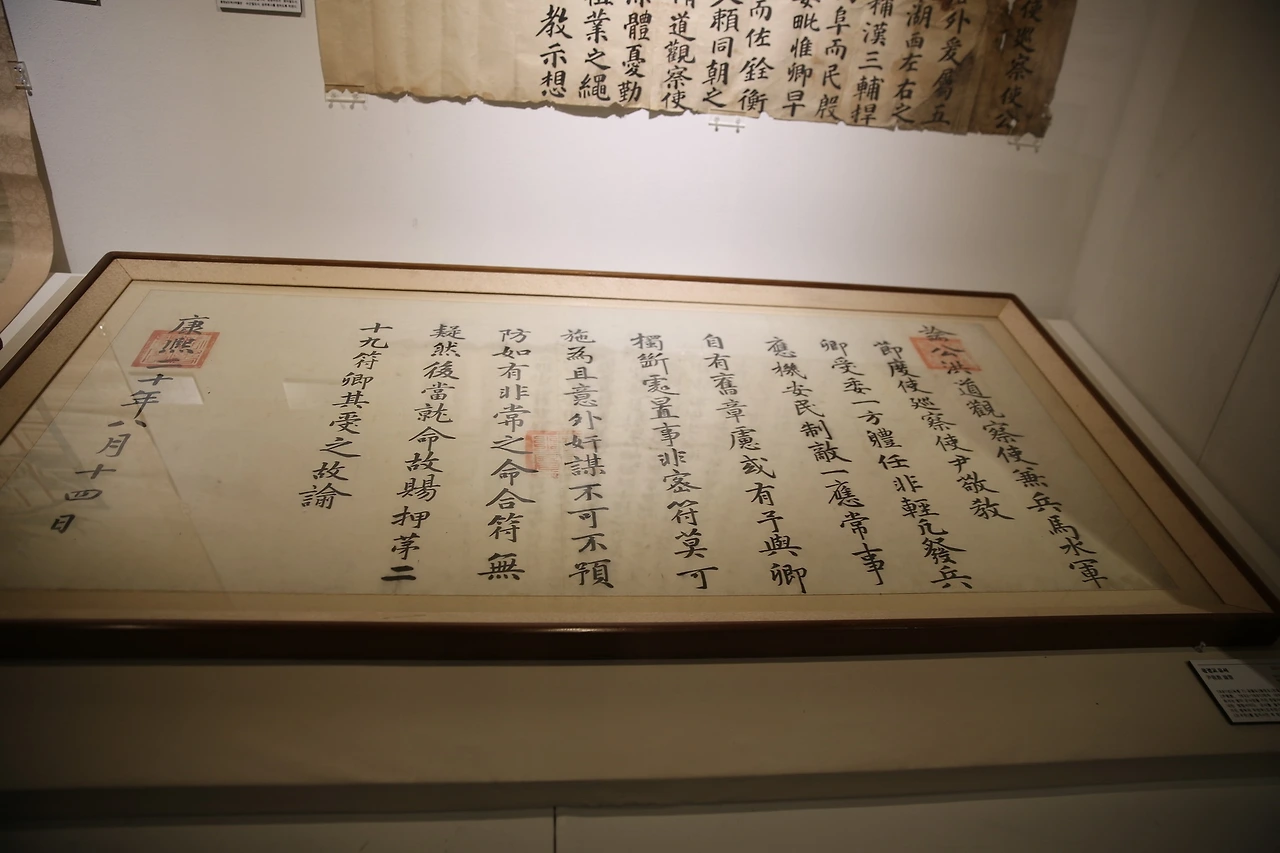 使巡察使公
外爰屬五
湖西左右之
漢三輔捍
阜而民殷
毗惟卿早
而佐銓衡
賴同朝之
道觀察使
體憂勤
業之繩
教示想
諭公洪道觀察使兼兵馬水軍
節度使巡察使尹敬敎
卿受委一方體任非輕凡發兵
應機安民制敵一應常事
自有舊章慮或有予與卿
獨斷處置事非密符莫可
施為且意外奸謀不可不預
防如有非常之命合符無
疑然後當就命故賜押苐二
十九符卿其受之故諭
康熙二十年八月十四日